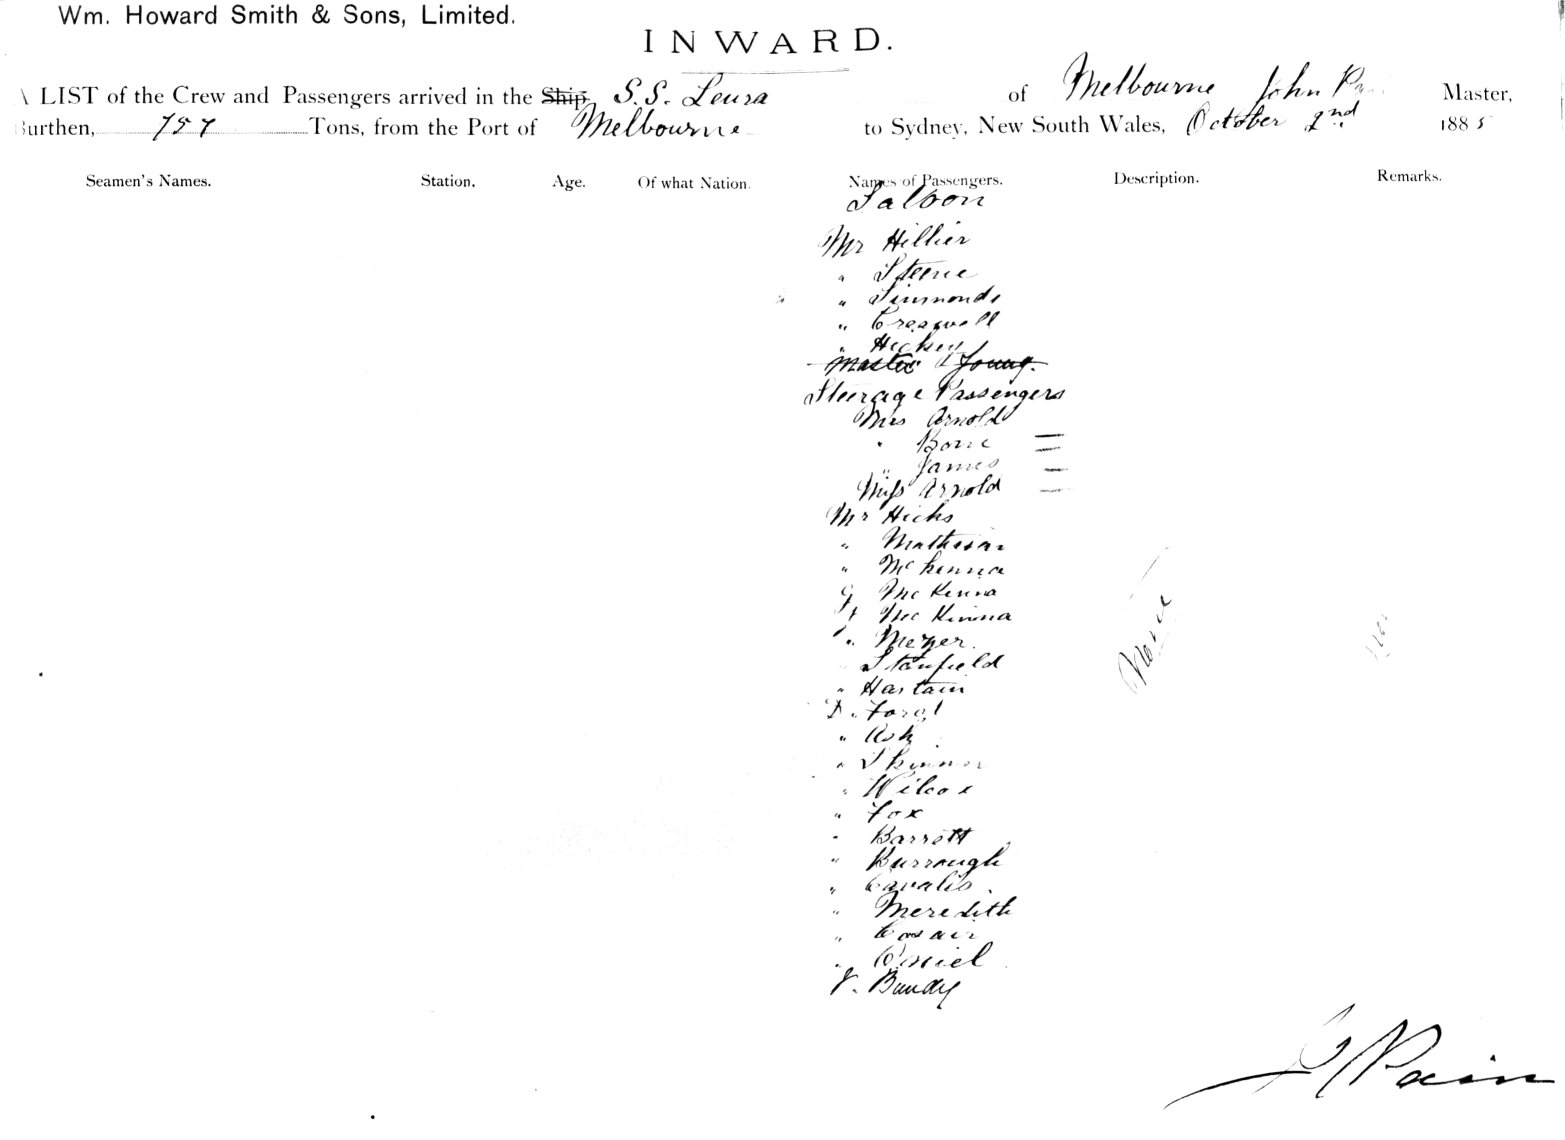 Wm. Howard Smith & Sons, Limited.
INWARD.
A LIST of the Crew and Passengers arrived in the Ship S.S. Leura of Melbourne John Master,
Burthen, 757 Tons, from the Port of Melbourne to Sydney, New South Wales, October 2nd 1885
Seamen's Names. Station. Age. Of what Nation. Names of Passengers. Description. Remarks.
Saloon
Mr Hillier
" Steene
" Simmonds
" Creswell
" Hickey
Master Young.
Steerage Passengers
Mrs Arnold
" Bone
" James
Miss Arnold
Mr Hicks
" Mathison
" McKenna
G McKinna
McKinna
" Meyer.
Stanfield
" Hartain
D " Ford
" Ash
" Skinner
" Wilcox
" Fox
" Barrett
" Burrough
" Cavalis
" Meredith
"
"
J. Bundy
None
J Pain